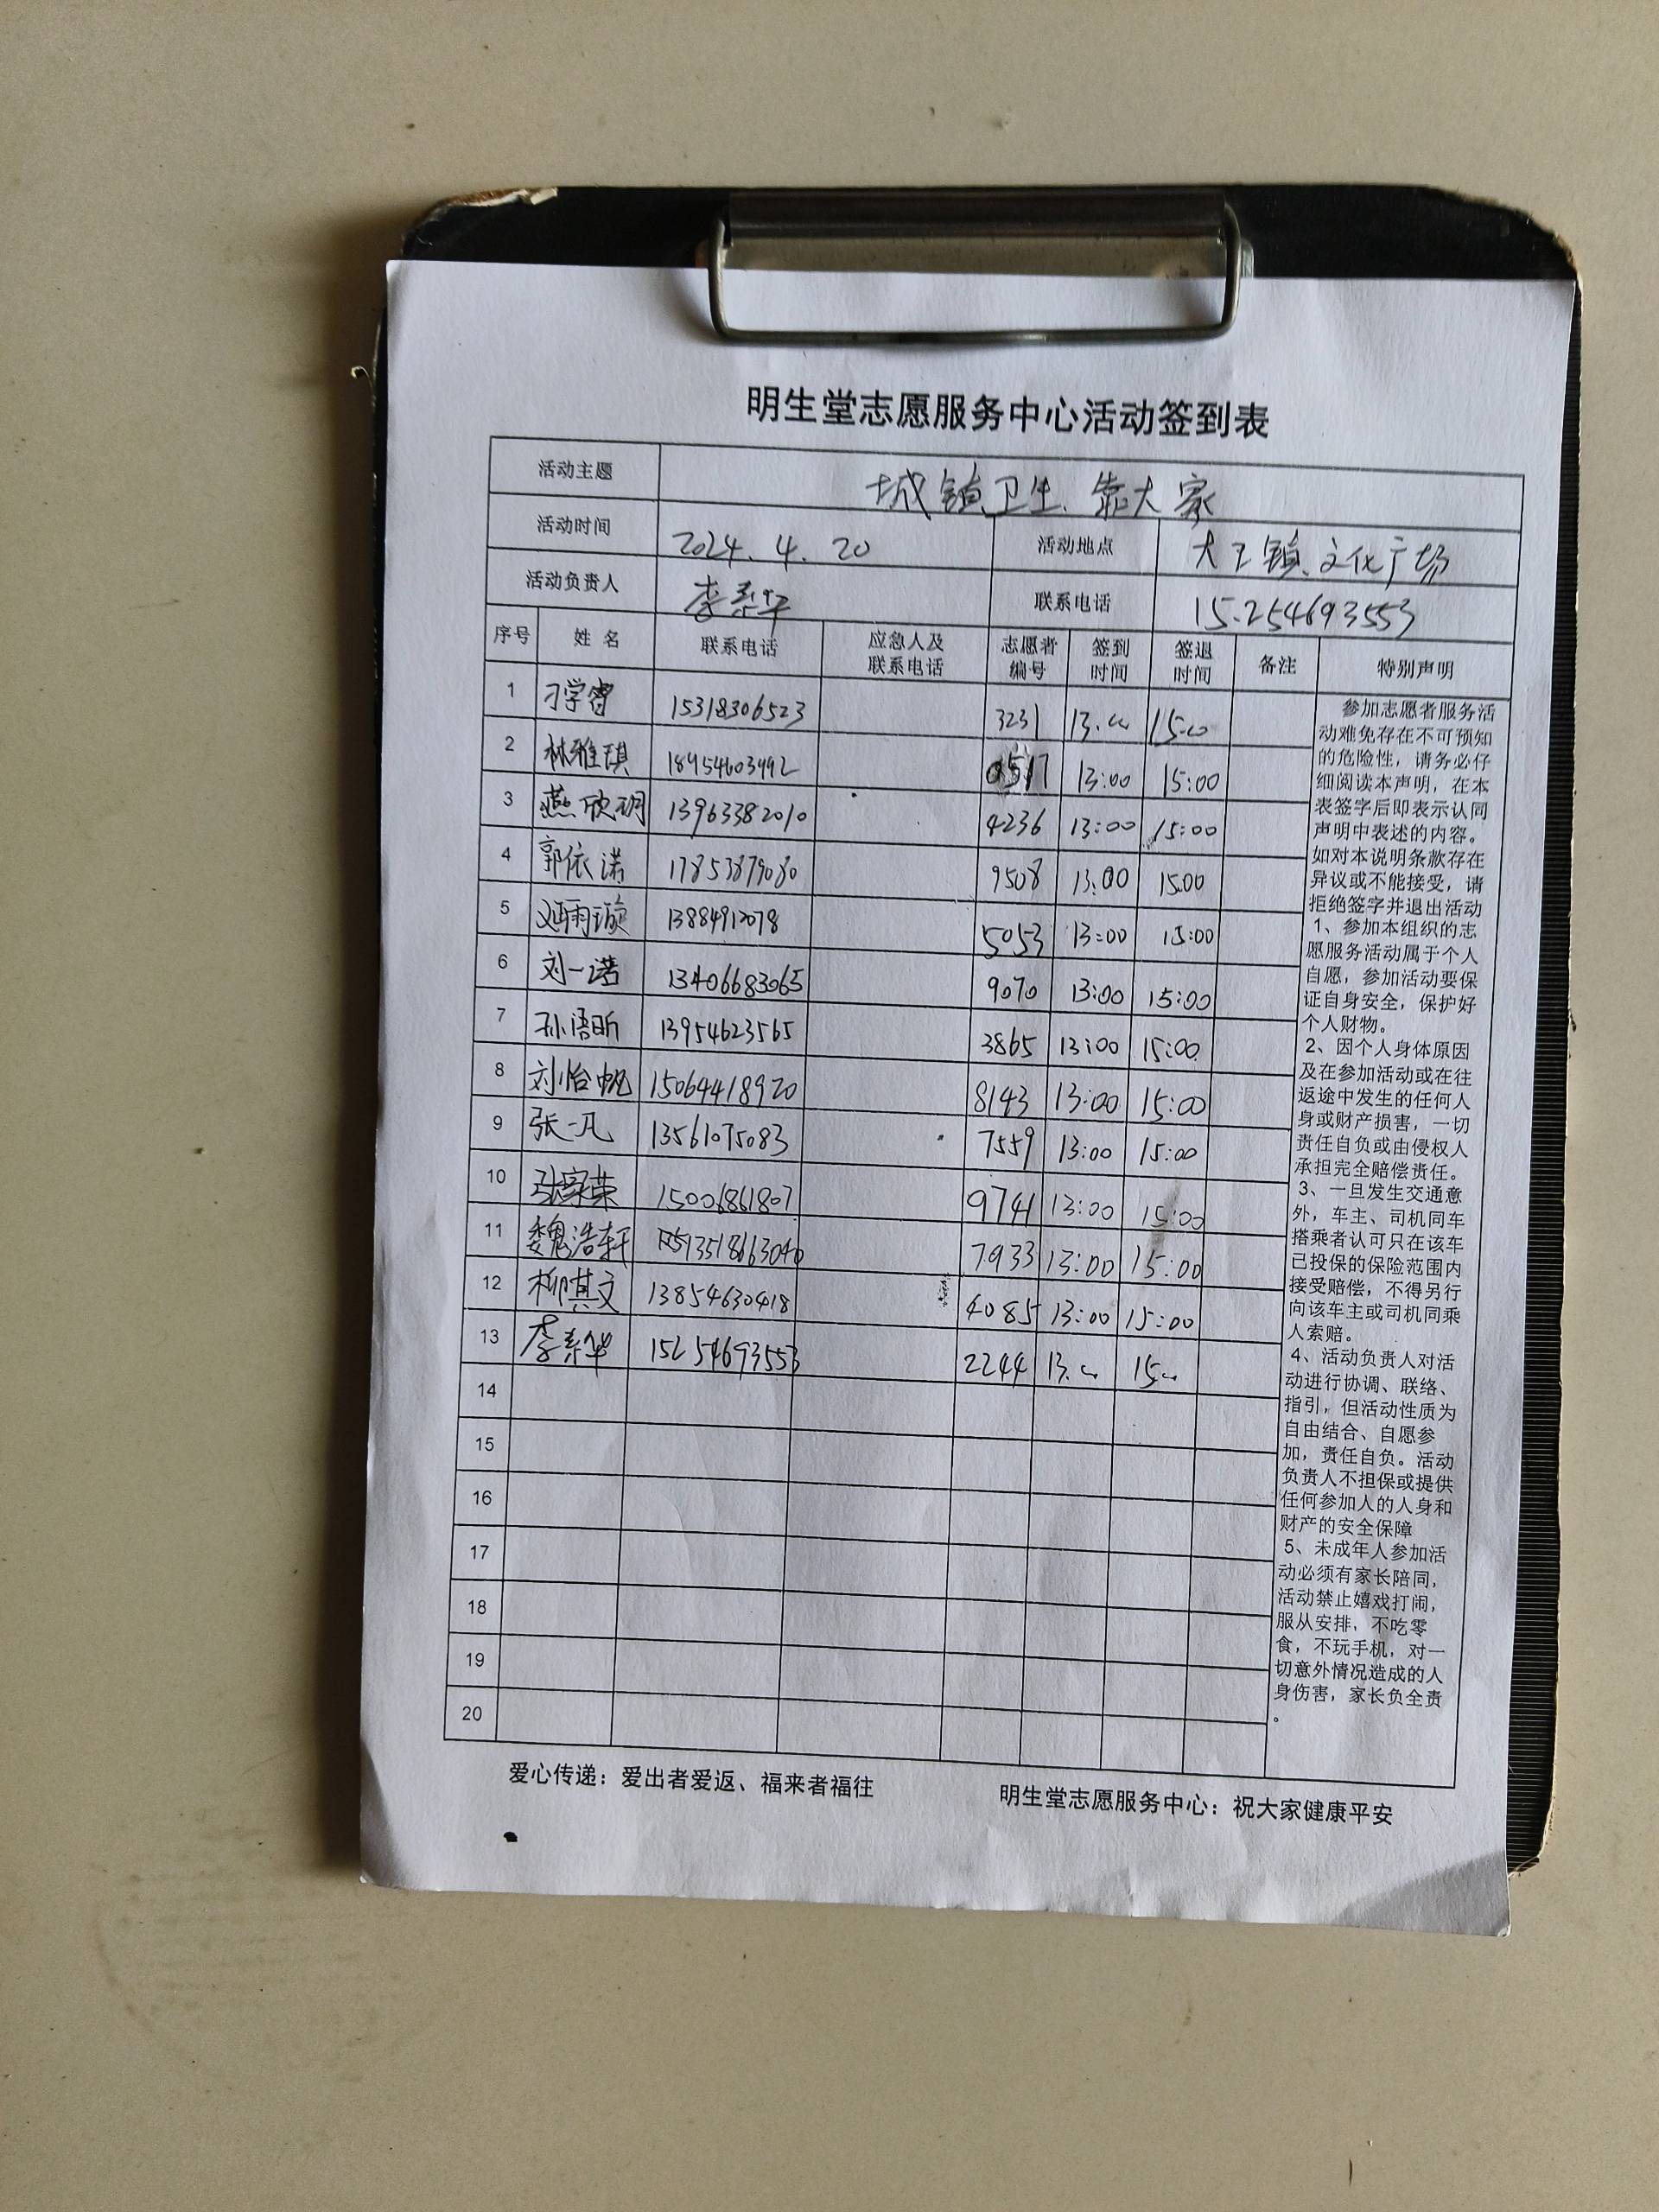 明生堂志愿服务中心活动签到表
活动主题 城镇卫生、靠大家
活动时间 2024.4.20 活动地点 大王镇文化广场
活动负责人 李素华 联系电话 15254693553
序号 姓名 联系电话 应急人及联系电话 志愿者编号 签到时间 签退时间 备注 特别声明
1 刁学睿 15318306523 3231 13:00 15:00
2 林雅琪 18954603992 13:00 15:00
3 燕欣玥 13963382010 4236 13:00 15:00
4 郭依诺 17853879080 9508 13:00 15:00
5 13884912078 5053 13:00 15:00
6 刘一诺 13406683065 9070 13:00 15:00
7 孙语昕 13954623565 3865 13:00 15:00
8 刘怡帆 15064418920 8143 13:00 15:00
9 张一凡 13561075083 7559 13:00 15:00
10 张家荣 15006861807 9741 13:00 15:00
11 魏浩轩 13518663040 7933 13:00 15:00
12 柳其文 13854630418 4085 13:00 15:00
13 李素华 15254693553 2244 13:00 15:00
14
15
16
17
18
19
20
参加志愿者服务活
动难免存在不可预知
的危险性，请务必仔
细阅读本声明，在本
表签字后即表示认同
声明中表述的内容。
如对本说明条款存在
异议或不能接受，请
拒绝签字并退出活动
1、参加本组织的志
愿服务活动属于个人
自愿，参加活动要保
证自身安全，保护好
个人财物。
2、因个人身体原因
及在参加活动或在往
返途中发生的任何人
身或财产损害，一切
责任自负或由侵权人
承担完全赔偿责任。
3、一旦发生交通意
外，车主、司机同车
搭乘者认可只在该车
已投保的保险范围内
接受赔偿，不得另行
向该车主或司机同乘
人索赔。
4、活动负责人对活
动进行协调、联络、
指引，但活动性质为
自由结合、自愿参
加，责任自负。活动
负责人不担保或提供
任何参加人的人身和
财产的安全保障
5、未成年人参加活
动必须有家长陪同，
活动禁止嬉戏打闹，
服从安排，不吃零
食，不玩手机，对一
切意外情况造成的人
身伤害，家长负全责
。
爱心传递：爱出者爱返、福来者福往 明生堂志愿服务中心：祝大家健康平安